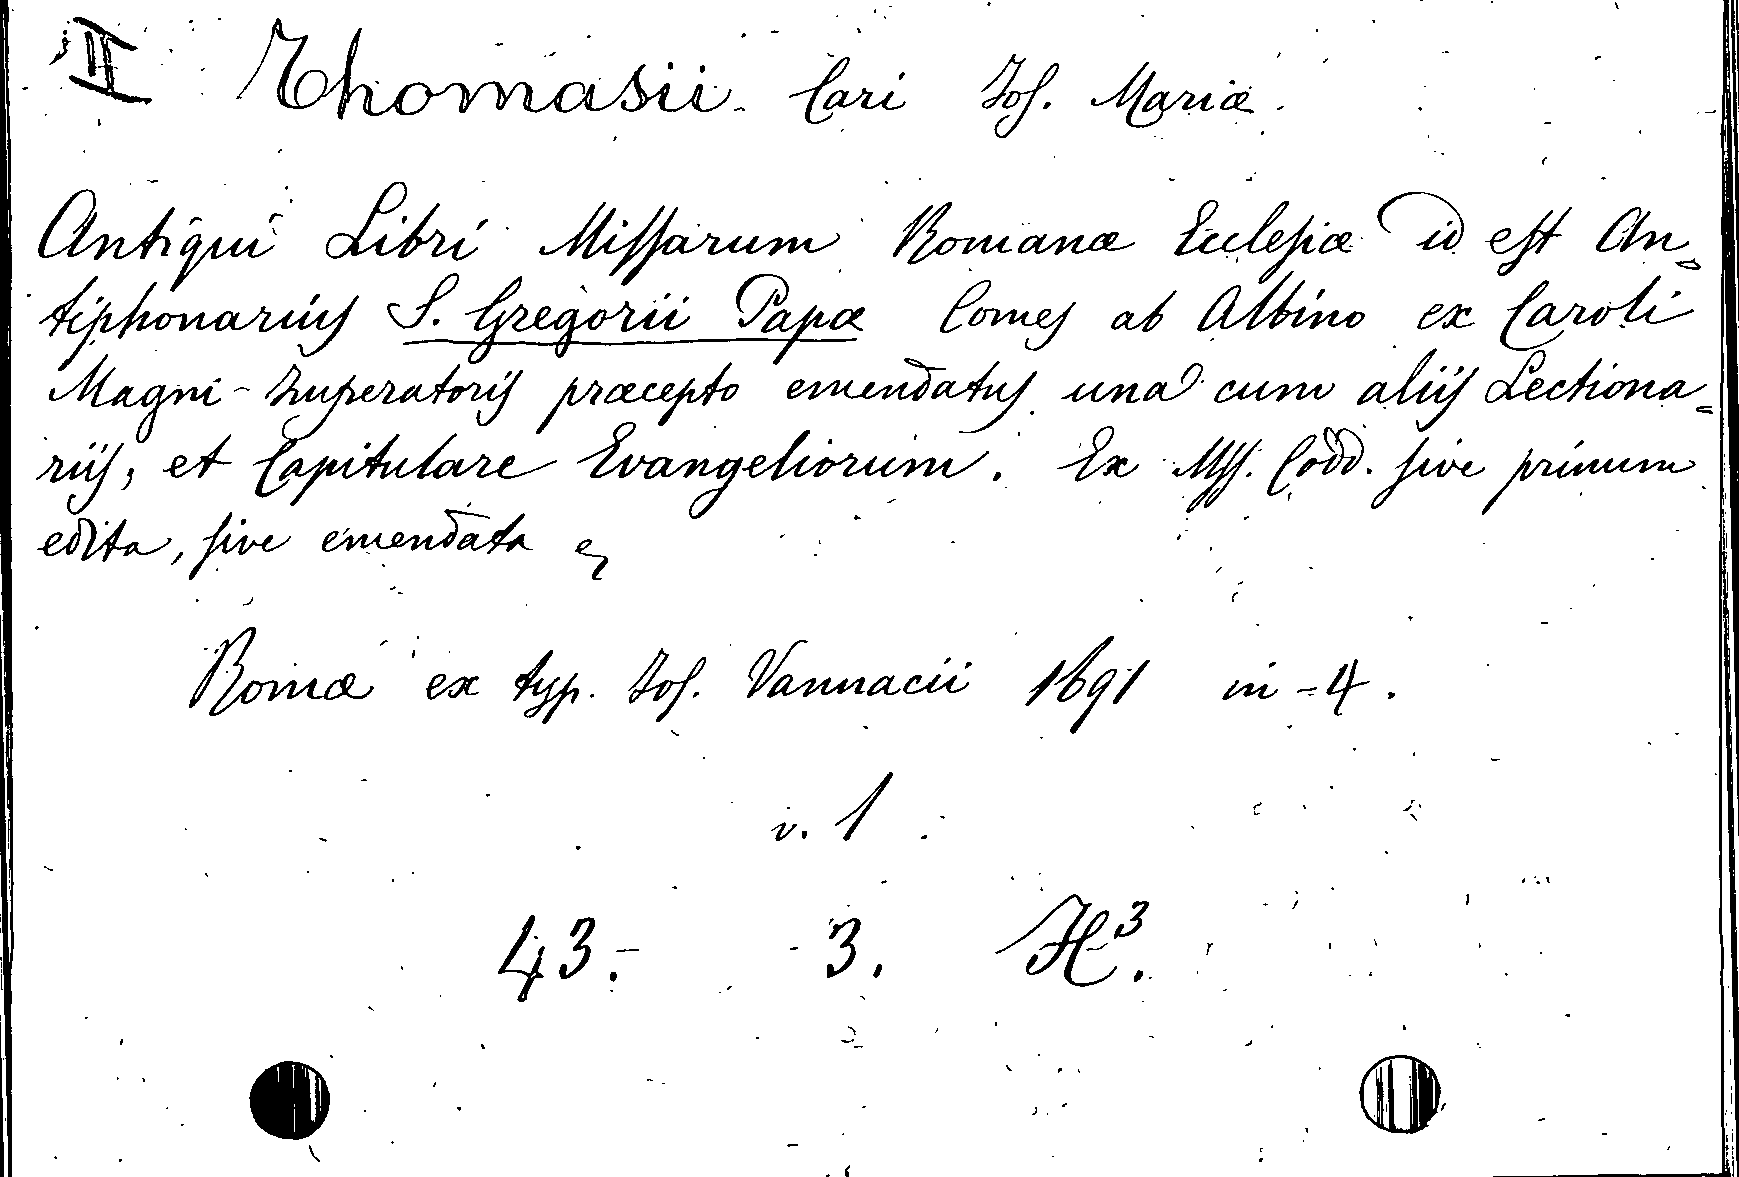 II Thomasii Cari Jos. Mariæ.
Antiqui Libri Missarum Romanæ Ecclesiæ id est An-
tiphonarius S. Gregorii Papæ Comes ab Albino ex Caroli
Magni Imperatoris præcepto emendatus una cum aliis Lectiona-
riis, et Capitulare Evangeliorum. Ex Mss. Codd. sive primum
edita, sive emendata
Romæ ex typ. Jos. Vannacii 1691 in-4.
v. 1
43.- 3. H³.